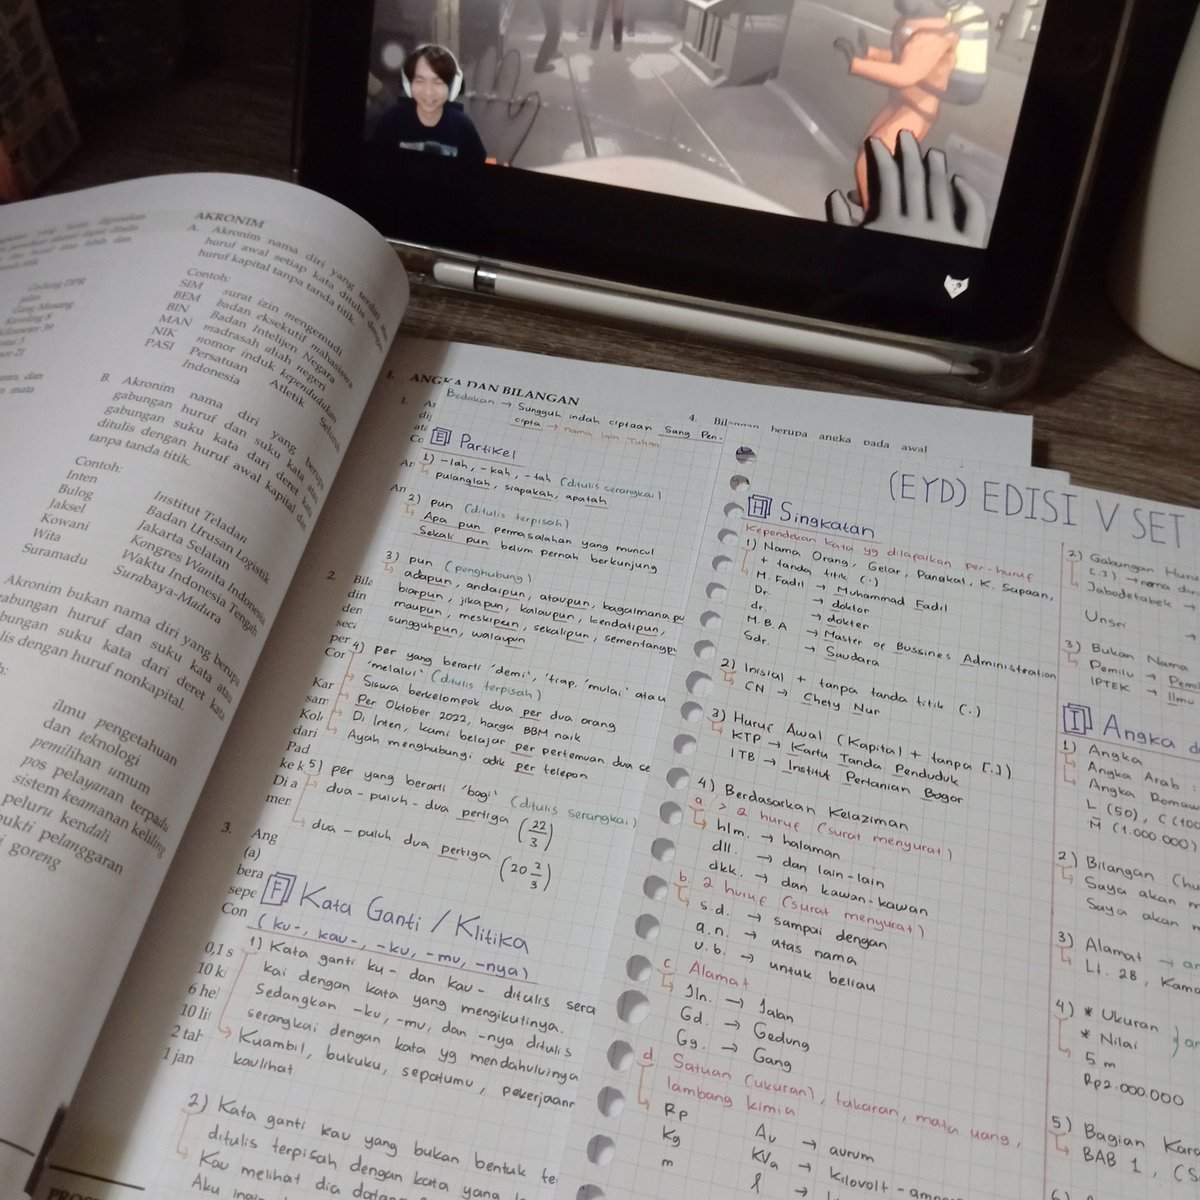 Gedung DPR
AKRONIM
A. Akronim nama diri yang terdiri atas
huruf awal setiap kata ditulis dengan
huruf kapital tanpa tanda titik.
Contoh:
SIM surat izin mengemudi
BEM badan eksekutif mahasiswa
BIN Badan Intelijen Negara
MAN madrasah aliah negeri
NIK nomor induk kependudukan
PASI Persatuan Atletik Seluruh
Indonesia
B. Akronim nama diri yang berupa
gabungan huruf dan suku kata atau
gabungan suku kata dari deret kata
ditulis dengan huruf awal kapital dan
tanpa tanda titik.
Contoh:
Inten Institut Teladan
Bulog Badan Urusan Logistik
Jaksel Jakarta Selatan
Kowani Kongres Wanita Indonesia
Wita Waktu Indonesia Tengah
Suramadu Surabaya-Madura
Akronim bukan nama diri yang berupa
gabungan huruf dan suku kata atau
gabungan suku kata dari deret kata
ditulis dengan huruf nonkapital.
ilmu pengetahuan
dan teknologi
pemilihan umum
pos pelayanan terpadu
sistem keamanan keliling
peluru kendali
bukti pelanggaran
goreng
I. ANGKA DAN BILANGAN
1.
Bedakan → Sungguh indah ciptaan Sang Pen-
cipta → nama lain Tuhan
E Partikel
1) -lah, -kah, -tah (ditulis serangkai)
pulanglah, siapakah, apatah
2) pun (ditulis terpisah)
Apa pun permasalahan yang muncul
Sekali pun belum pernah berkunjung
3) pun (penghubung)
adapun, andaipun, ataupun, bagaimanapu
biarpun, jikapun, kalaupun, kendatipun,
maupun, meskipun, sekalipun, sementangpu
sungguhpun, walaupun
4) per yang berarti 'demi', 'tiap', 'mulai' atau
'melalui' (ditulis terpisah)
Siswa berkelompok dua per dua orang
Per Oktober 2022, harga BBM naik
Di Inten, kami belajar per pertemuan dua ce
Ayah menghubungi adik per telepon
5) per yang berarti 'bagi' (ditulis serangkai)
dua-puluh-dua pertiga (22/3)
dua-puluh dua pertiga (20 2/3)
F Kata Ganti / Klitika
(ku-, kau-, -ku, -mu, -nya)
1) Kata ganti ku- dan kau- ditulis sera
kai dengan kata yang mengikutinya.
Sedangkan -ku, -mu, dan -nya ditulis
serangkai dengan kata yg mendahuluinya
Kuambil, bukuku, sepatumu, pekerjaann
kaulihat
2) Kata ganti kau yang bukan bentuk te
ditulis terpisah dengan kata yang
Kau melihat dia datang
2
3.
Ang
(a)
bera
sepe
Con
0,1 s
10 ki
6 he
10 li
2 tah
1 jan
4. Bilangan berupa angka pada awal
(EYD) EDISI V SET
H Singkatan
Kependekan kata yg dilafalkan per-huruf
1) Nama Orang, Gelar, Pangkat, K. Sapaan,
+ tanda titik (.)
M. Fadil → Muhammad Fadil
Dr. → doktor
dr. → dokter
M.B.A → Master of Bussines Administeration
Sdr. → Saudara
2) Inisial + tanpa tanda titik (.)
CN → Chety Nur
3) Huruf Awal (Kapital) + tanpa [.])
KTP → Kartu Tanda Penduduk
ITB → Institut Pertanian Bogor
4) Berdasarkan Kelaziman
a. > 2 huruf (surat menyurat)
hlm. → halaman
dll. → dan lain-lain
dkk. → dan kawan-kawan
b. 2 huruf (surat menyurat)
s.d. → sampai dengan
a.n. → atas nama
u.b. → untuk beliau
c. Alamat
Jln. → Jalan
Gd. → Gedung
Gg. → Gang
d. Satuan (ukuran), takaran, mata uang,
lambang kimia
Rp Au → aurum
Kg KVa → kilovolt-amp
m l →
2) Gabungan Huru
(.) → nama dir
Jabodetabek →
Unsri →
3) Bukan Nama
Pemilu → Pemil
IPTEK → Ilmu
I Angka d
1) Angka
Angka Arab :
Angka Romaw
L (50), C (100
M̄ (1.000.000)
2) Bilangan (hu
Saya akan m
Saya akan
3) Alamat → an
Lt. 28, Kama
4) * Ukuran
* Nilai
5 m
Rp2.000.000
5) Bagian Kara
BAB 1, (S